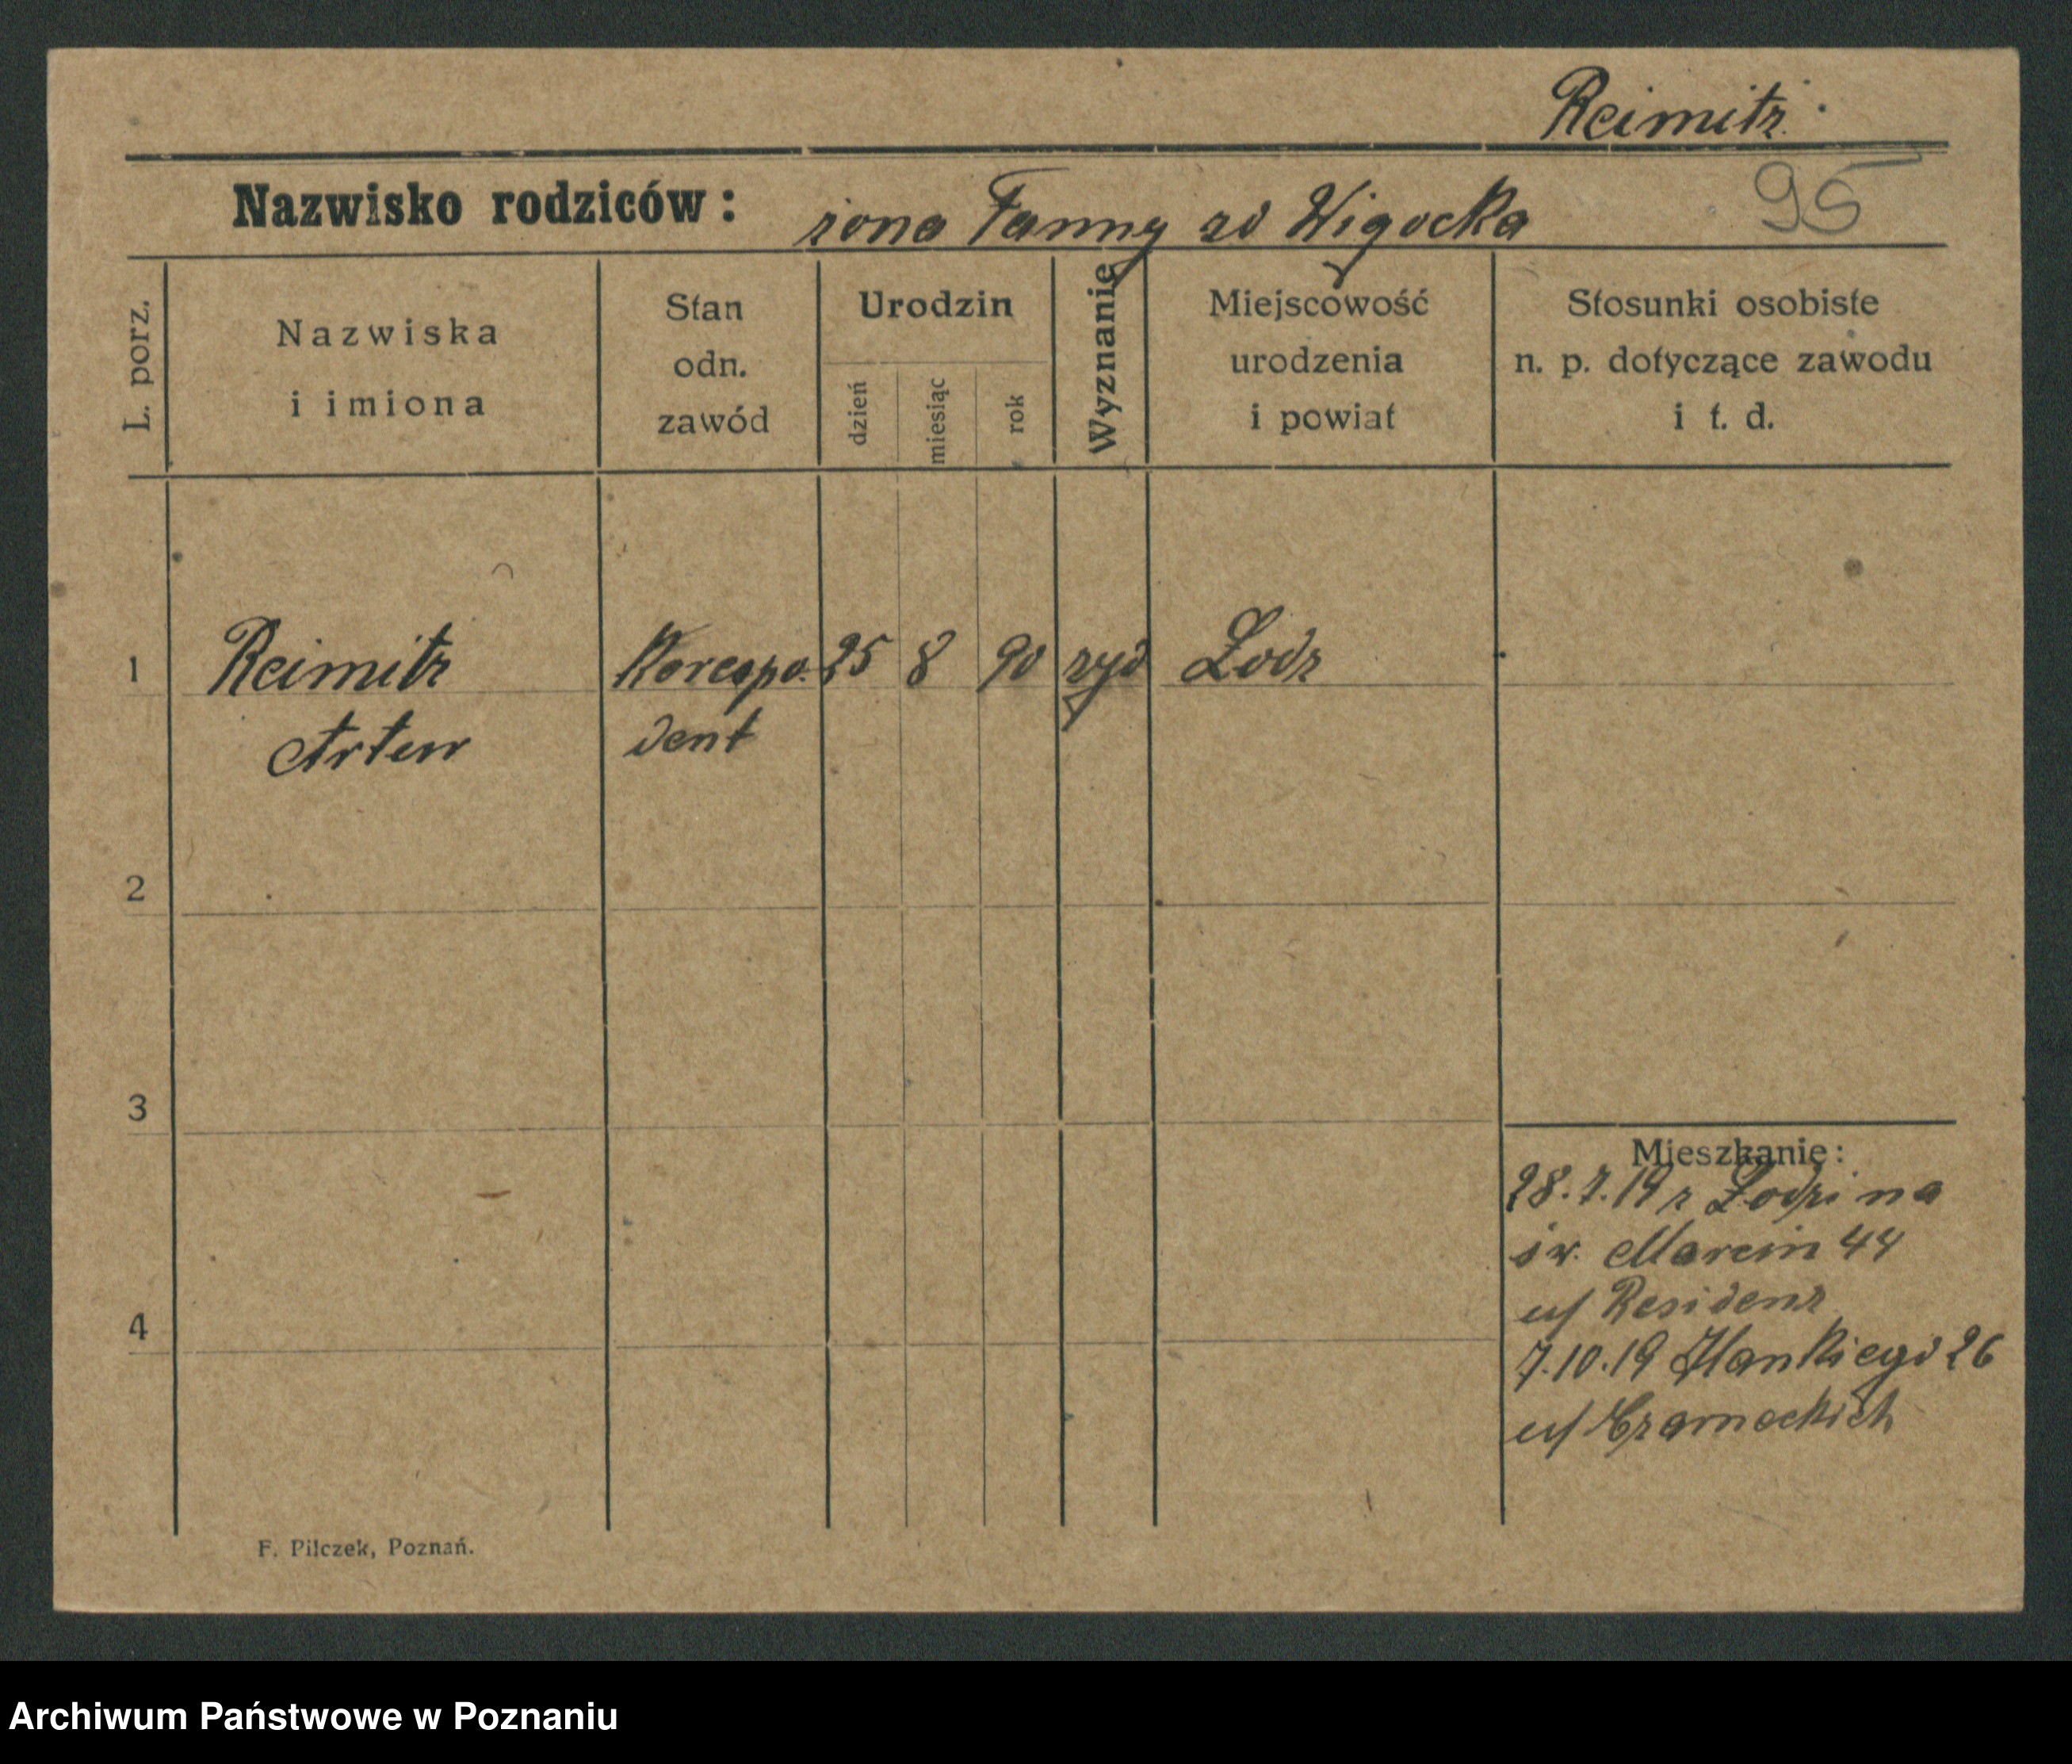 Reimitz.
Nazwisko rodziców: żona Fanny zd Wigocka
95
L. porz.
Nazwiska i imiona
Stan odn. zawód
Urodzin
dzień
miesiąc
rok
Wyznanie
Miejscowość urodzenia i powiat
Stosunki osobiste n. p. dotyczące zawodu i t. d.
1 Reimitz Korespo. 25 8 90 zyd Lodz
Artur dent
2
3
Mieszkanie:
28.7.19 z Lodzi na
św. Marcin 44
u/ Residenz
4
7.10.19 26
u/ Czarnockich
F. Pilczek, Poznań.
Archiwum Państwowe w Poznaniu